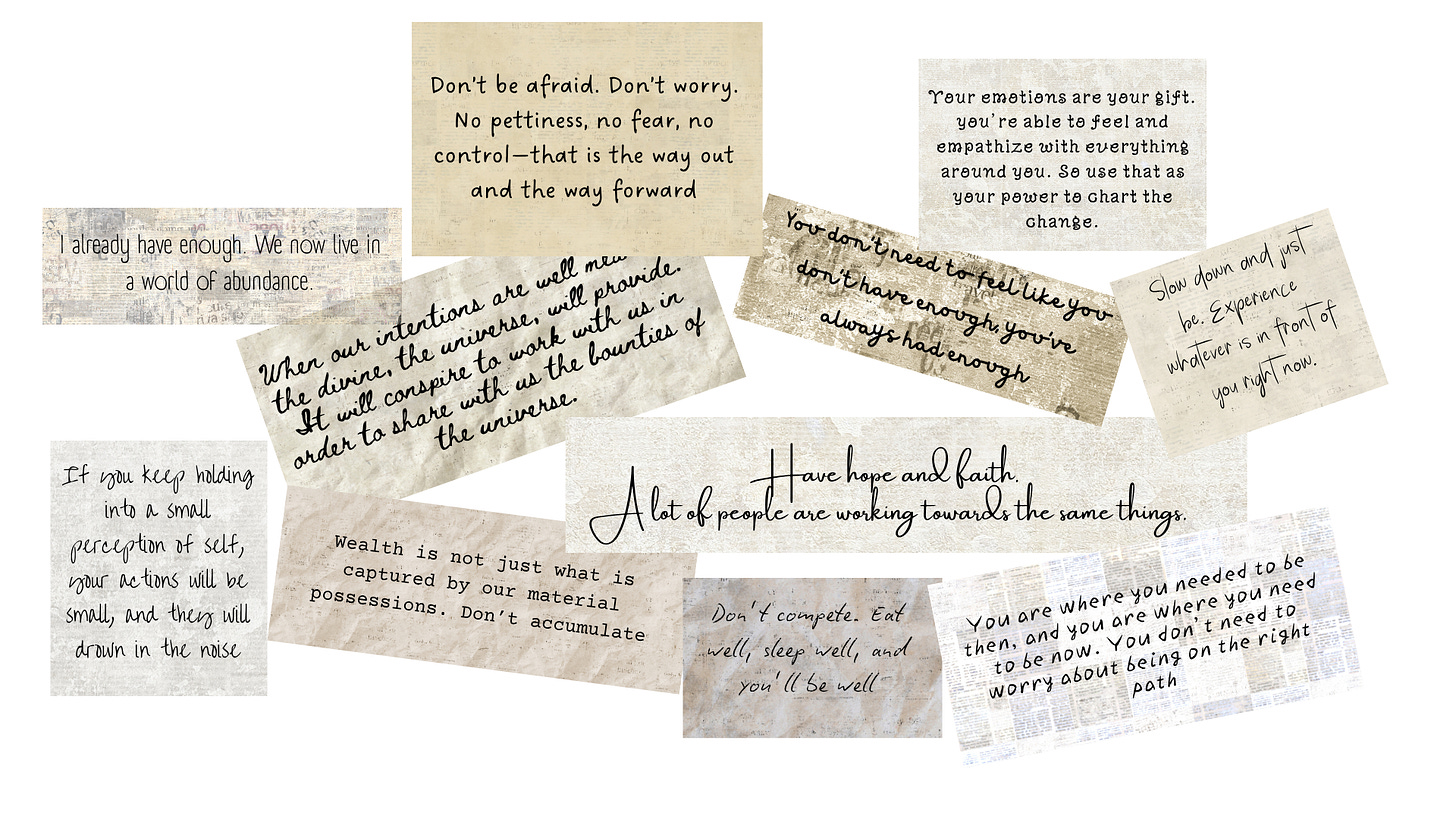 Don't be afraid. Don't worry.
No pettiness, no fear, no
control—that is the way out
and the way forward
Your emotions are your gift.
you're able to feel and
empathize with everything
around you. So use that as
your power to chart the
change.
I already have enough. We now live in
a world of abundance.
When our intentions are well
the divine, the universe, will provide.
It will conspire to work with us in
order to share with us the bounties of
the universe.
You don't need to feel like you
don't have enough, you've
always had enough
Slow down and just
be. Experience
whatever is in front of
you right now.
Have hope and faith.
A lot of people are working towards the same things.
If you keep holding
into a small
perception of self,
your actions will be
small, and they will
drown in the noise
Wealth is not just what is
captured by our material
possessions. Don't accumulate
Don't compete. Eat
well, sleep well, and
you'll be well
You are where you needed to be
then, and you are where you need
to be now. You don't need to
worry about being on the right
path